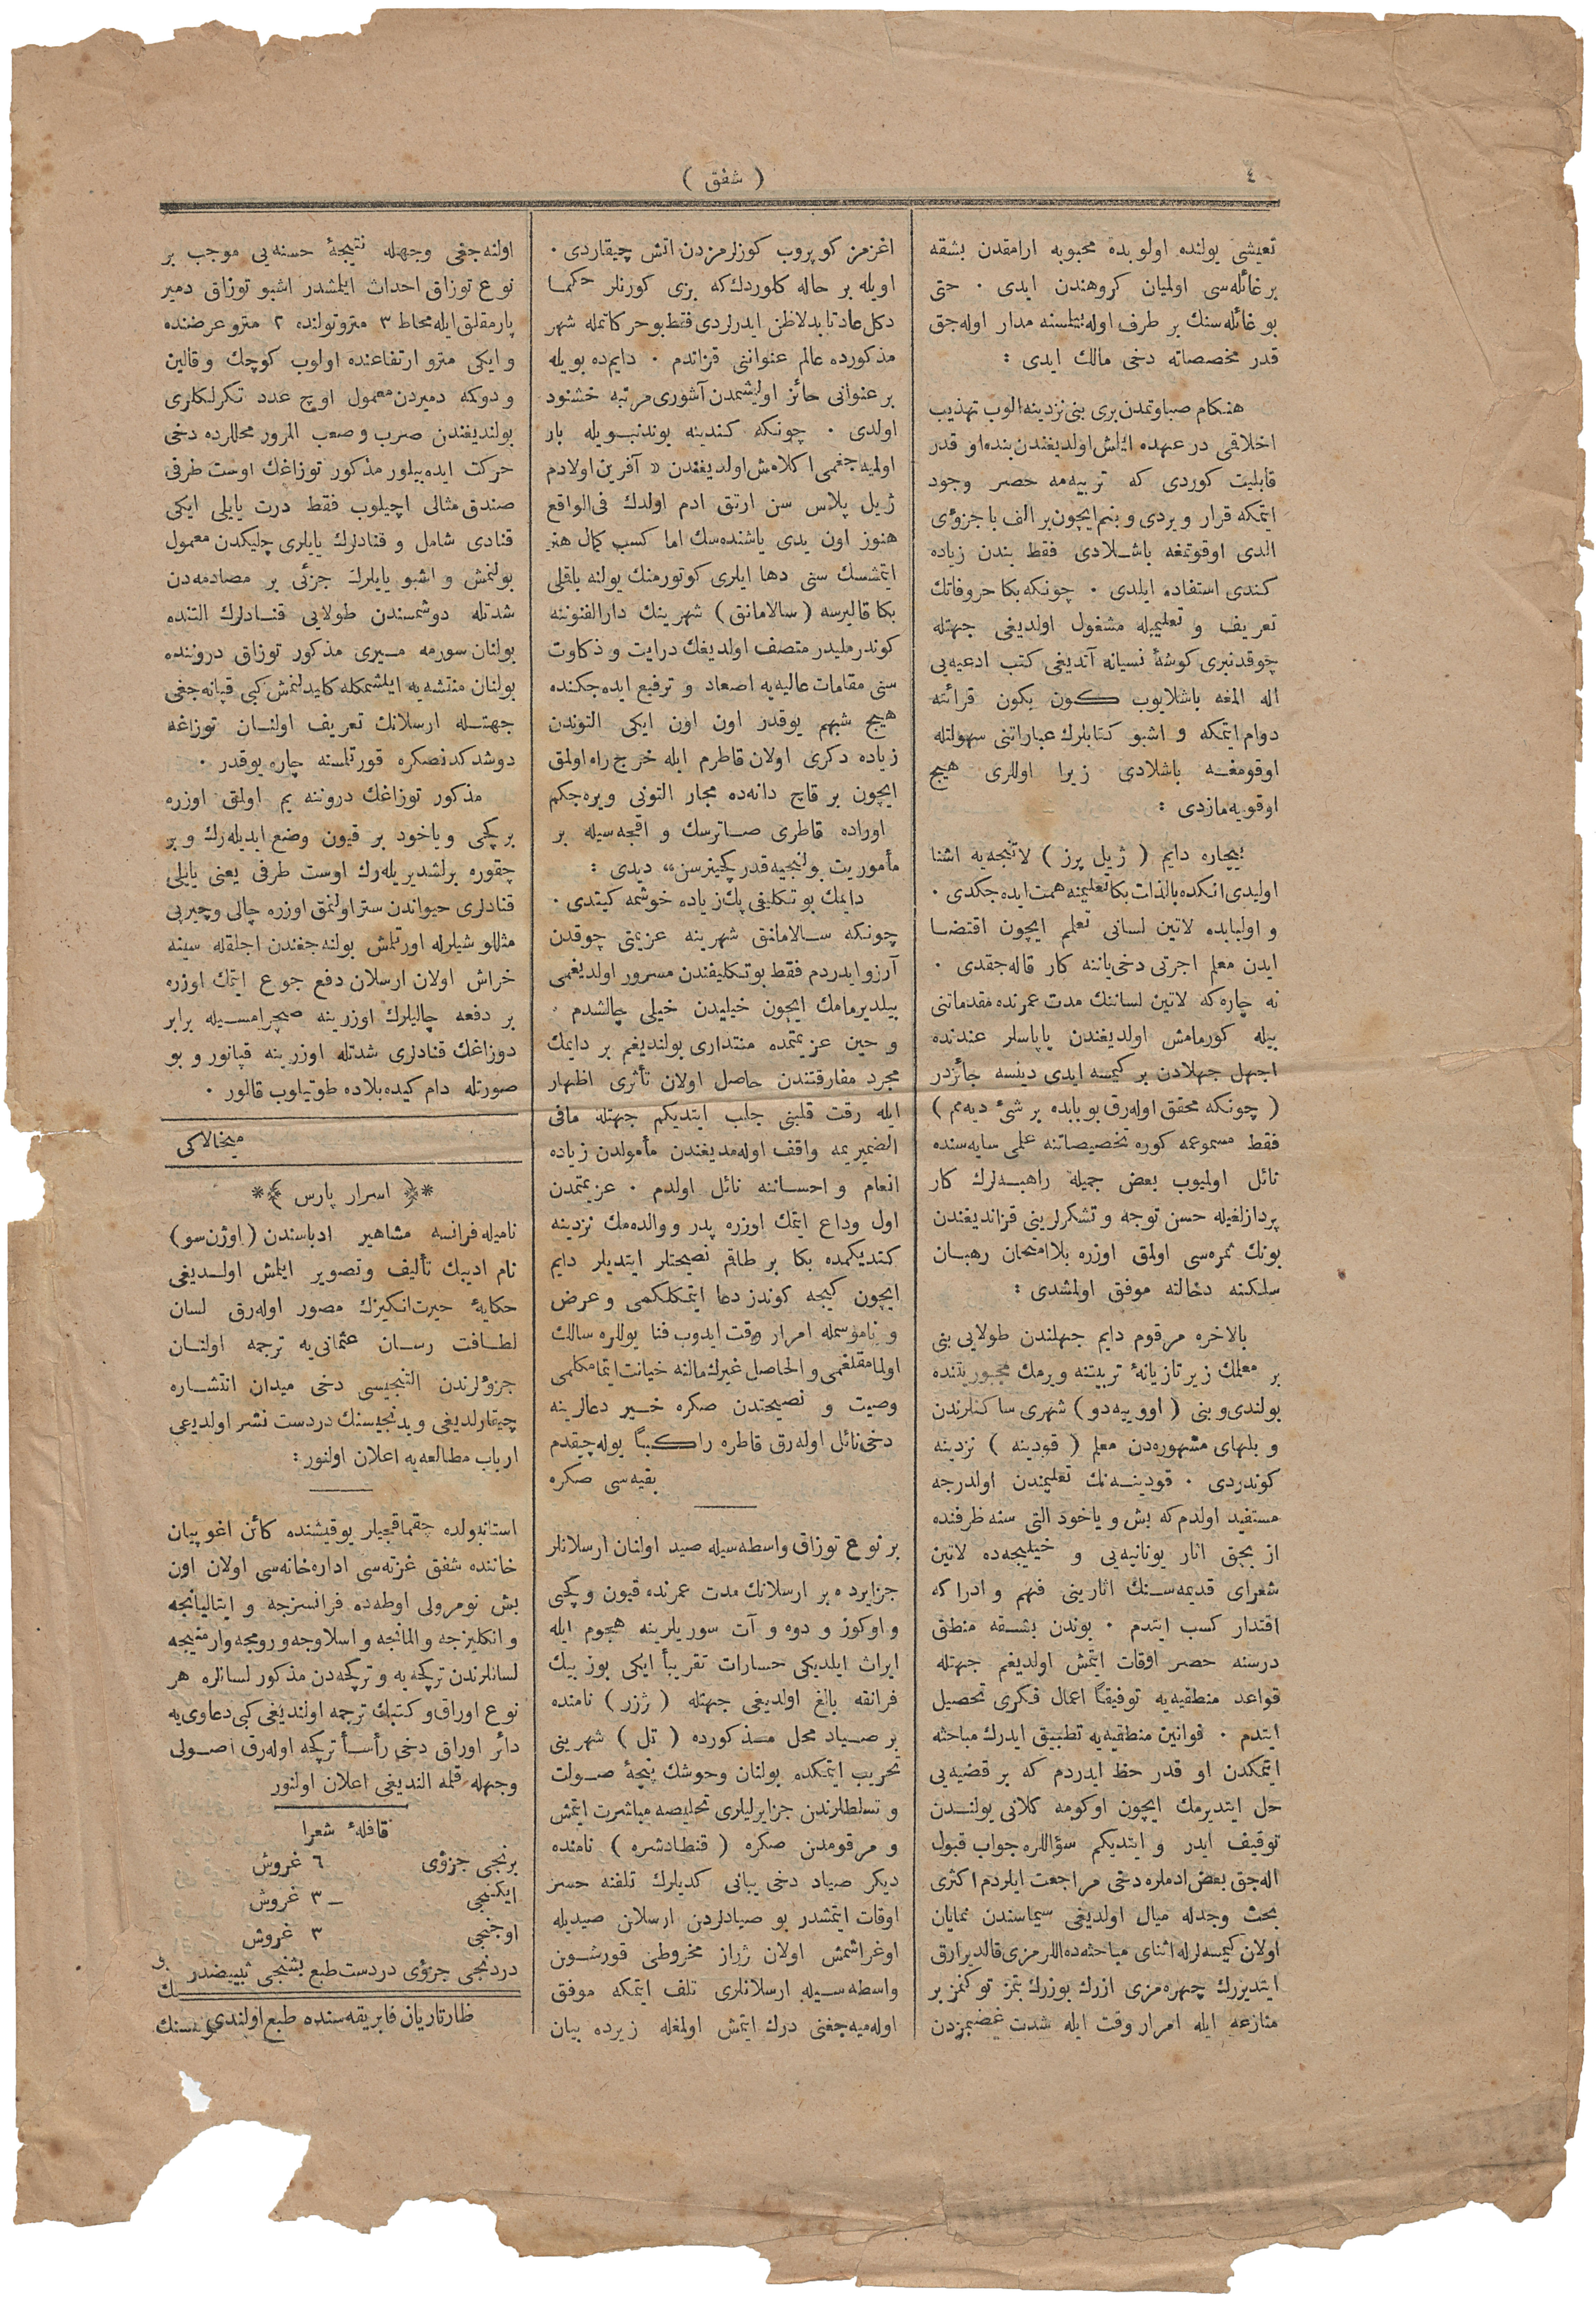 ٤
( شفق )
تعیشی یولنده اولوبده محبوبه ارامقدن بشقه
بر غائله‌سی اولمیان کروهندن ایدی ٠ حتی
بو غائله‌سنك بر طرف اوله بیلمسنه مدار اوله‌جق
قدر مخصصاته دخی مالك ایدی :
هنكام صباوتمدن بری بنی نزدینه الوب تهذیب
اخلاقی در عهده ایلش اولدیغندن بنده او قدر
قابلیت كوردی كه تربیه‌مه حصر وجود
ایتمكه قرار ویردی و بنم ایچون بر الف با جزؤی
الدی اوقوتمغه باشلادی فقط بندن زیاده
كندی استفاده ایلدی ٠ چونكه بكا حروفاتك
تعریف و تعلیمیله مشغول اولدیغی جهتله
چوقدنبری كوشۀ نسیانه آتدیغی كتب ادعیه‌یی
اله المغه باشلایوب كون بكون قرائته
دوام ایتمكه و اشبو كتابلرك عباراتنی سهولتله
اوقومغه باشلادی زیرا اوللری هیچ
اوقویه‌مازدی :
بیچاره دایم ( ژیل پرز ) لاتینجه‌یه اشنا
اولیدی انكده بالذات بكا تعلیمنه همت ایده‌جكدی ٠
و اولبابده لاتین لسانی تعلم ایچون اقتضا
ایدن معلم اجرتی دخی یاننه كار قاله‌جقدی ٠
نه چاره كه لاتین لساننك مدت عمرنده مقدماتنی
بیله كورمامش اولدیغندن پاپاسلر عندنده
اجهل جهلادن بر كیمسه ایدی دینسه جائزدر
( چونكه محقق اوله‌رق بو بابده بر شیٔ دیه‌مم )
فقط مسموعمه كوره تخصیصاتنه علمی سایه‌سنده
نائل اولمیوب بعض جمیله راهبه‌لرك كار
پردازلغیله حسن توجه و تشكرلرینی قزاندیغندن
بونك ثمره‌سی اولمق اوزره بلا امتحان رهبان
سلكنه دخالته موفق اولمشدی :
بالاخره مرقوم دایم جهلندن طولایی بنی
بر معلمك زیر تازیانۀ تربیتنه ویرمك مجبوریتنده
بولندی و بنی ( اوویه‌دو ) شهری ساكنلرندن
و بلهای مشهوره‌دن معلم ( قودینه ) نزدینه
كوندردی ٠ قودینه‌نك تعلیمندن اولدرجه
مستفید اولدم كه بش و یاخود التی سنه ظرفنده
از بچق اثار یونانیه‌یی و خیلیجه‌ده لاتین
شعرای قدیمه‌سنك اثارینی فهم و ادراكه
اقتدار كسب ایتدم ٠ بوندن بشقه منطق
درسنه حصر اوقات ایتمش اولدیغم جهتله
قواعد منطقیه‌یه توفیقاً اعمال فكری تحصیل
ایتدم ٠ قوانین منطقیه‌یه تطبیق ایدرك مباحثه
ایتمكدن او قدر حظ ایدردم كه بر قضیه‌یی
حل ایتدیرمك ایچون اوكومه كلانی یولندن
توقیف ایدر و ایتدیكم سؤاللره جواب قبول
اله‌جق بعض ادملره دخی مراجعت ایلردم اكثری
بحث وجدله میال اولدیغی سیماسندن نمایان
اولان كیمسه‌لرله اثنای مباحثه‌ده اللرمزی قالدیرارق
ایتدیزرك چهره‌مزی ازرك بوزرك بتمز توكنمز بر
منازعه ایله امرار وقت ایله شدت غضبمزدن
اغزمز كوپروب كوزلرمزدن اتش چیقاردی ٠
اویله بر حاله كلوردك كه بزی كورنلر حكما
دكل عادتا بدلا ظن ایدرلردی فقط بو حركاتمله شهر
مذكورده عالم عنواننی قزاندم ٠ دایم‌ده بویله
بر عنوانی حائز اولیشمدن آشوری مرتبه خشنود
اولدی ٠ چونكه كندینه بوندنبویله بار
اولمیه‌جغمی اكلامش اولدیغندن « آفرین اولادم
ژیل بلاس سن ارتق ادم اولدك فی الواقع
هنوز اون یدی یاشنده‌سك اما كسب كمال هنر
ایتمشسك سنی دها ایلری كوتورمنك یولنه باقلی
بكا قالیرسه ( سالامانق ) شهرینك دارالفنوننه
كوندرملیدر متصف اولدیغك درایت و ذكاوت
سنی مقامات عالیه‌یه اصعاد و ترفیع ایده‌جكنده
هیچ شبهم یوقدر اون اون ایكی التوندن
زیاده دكری اولان قاطرم ایله خرج راه اولمق
ایچون بر قاچ دانه‌ده مجار التونی ویره‌جكم
اوراده قاطری صاترسك و اقچه‌سیله بر
مأموریت بولنجیه قدر كچینرسن» دیدی :
دایمك بو تكلیفی پك زیاده خوشمه كیتدی ٠
چونكه سالامانق شهرینه عزیمتی چوقدن
آرزو ایدردم فقط بو تكلیفندن مسرور اولدیغمی
بیلدیرمامك ایچون خیلیدن خیلی چالشدم ٠
و حین عزیمتمده منتداری بولندیغم بر دایمك
مجرد مفارقتندن حاصل اولان تأثری اظهار
ایله رقت قلبنی جلب ایتدیكم جهتله مافی
الضمیریمه واقف اوله‌مدیغندن مأمولدن زیاده
انعام و احساننه نائل اولدم ٠ عزیمتمدن
اول وداع ایتمك اوزره پدر و والده‌مك نزدینه
كتدیكمده بكا بر طاقم نصیحتلر ایتدیلر دایم
ایچون كیجه كوندز دعا ایتمكلكمی و عرض
و ناموسمله امرار وقت ایدوب فنا یوللره سالك
اولمامقلغمی و الحاصل غیرك مالنه خیانت ایتمامكلمی
وصیت و نصیحتدن صكره خیر دعالرینه
دخی نائل اوله‌رق قاطره راكباً یوله چیقدم
بقیه‌سی صكره
بر نوع توزاق واسطه‌سیله صید اولنان ارسلانلر
جزایرده بر ارسلانك مدت عمرنده قیون و كچی
و اوكوز و دوه و آت سوریلرینه هجوم ایله
ایراث ایلدیكی خسارات تقریباً ایكی یوز بیك
فرانقه بالغ اولدیغی جهتله ( ژزر ) نامنده
بر صیاد محل مذكورده ( تل ) شهرینی
تخریب ایتمكده بولنان وحوشك پنجۀ صولت
و تسلطلرندن جزایرلیلری تخلیصه مباشرت ایتمش
و مرقومدن صكره ( قنطادشره ) نامنده
دیكر صیاد دخی یبانی كدیلرك تلفنه حسر
اوقات ایتمشدر بو صیادلردن ارسلان صیدیله
اوغراشمش اولان ژراز مخروطی قورشون
واسطه‌سیله ارسلانلری تلف ایتمكه موفق
اوله‌میه‌جغنی درك ایتمش اولمغله زیرده بیان
اولنه‌جغی وجهله نتیجۀ حسنه‌یی موجب بر
نوع توزاق احداث ایلمشدر اشبو توزاق دمیر
پارمقلق ایله محاط ٣ مترو تولنده ٢ مترو عرضنده
و ایكی مترو ارتفاعنده اولوب كوچك و قالین
و دوكه دمیردن معمول اوچ عدد تكرلكلری
بولندیغندن صرب و صعب المرور محللرده دخی
حركت ایده بیلور مذكور توزاغك اوست طرفی
صندق مثالی اچیلوب فقط درت یایلی ایكی
قنادی شامل و قنادلرك یایلری چلیكدن معمول
بولنمش و اشبو یایلرك جزئی بر مصادمه‌دن
شدتله دوشمسندن طولایی قنادلرك التنده
بولنان سورمه مسیری مذكور توزاق دروننده
بولنان منتشه‌یه ایلشمكله كلیدلنمش كبی قپانه‌جغی
جهتله ارسلانك تعریف اولنان توزاغه
دوشدكدنصكره قورتلمسنه چاره یوقدر ٠
مذكور توزاغك دروننه یم اولمق اوزره
بر كچی و یاخود بر قیون وضع ایدیله‌رك و بر
چقوره یرلشدیریله‌رك اوست طرفی یعنی یایلی
قنادلری حیواندن ستر اولنمق اوزره چالی و چیرپی
مثللو شیلرله اورتلمش بولنه‌جغندن اجلقله سینه
خراش اولان ارسلان دفع جوع ایتمك اوزره
بر دفعه چالیلرك اوزرینه صچرامسیله برابر
دوزاغك قنادلری شدتله اوزرینه قپانور و بو
صورتله دام كیده بلاده طوتیلوب قالور ٠
میخالاكی
*﴿ اسرار پارس ﴾*
نامیله فرانسه مشاهیر ادباسندن (اوژن سو)
نام ادیبك تألیف و تصویر ایلمش اولدیغی
حكایۀ حیرت‌انكیزك مصور اوله‌رق لسان
لطافت رسان عثمانی‌یه ترجمه اولنان
جزؤلرندن التنجیسی دخی میدان انتشاره
چیقارلدیغی و یدنجیسنك دردست نشر اولدیغی
ارباب مطالعه‌یه اعلان اولنور :
استانبولده چقماقجیلر یوقیشنده كائن اغوپیان
خاننده شفق غزته‌سی اداره‌خانه‌سی اولان اون
بش نومرولی اوطه‌ده فرانسزجه و ایتالیانجه
و انكلیزجه و المانجه و اسلاوجه و رومجه و ارمنیجه
لسانلرندن تركجه‌یه و تركجه‌دن مذكور لسانلره هر
نوع اوراق و كتبك ترجمه اولندیغی كبی دعاوی‌یه
دائر اوراق دخی رأساً تركجه اوله‌رق اصولی
وجهله قلمه الندیغی اعلان اولنور
قافلۀ شعرا
برنجی جزؤی ٦ غروش
ایكنجی ــ ٣ غروش
اوجنجی ٣ غروش
دردنجی جزؤی دردست طبع بشنجی تبییضدر
طارتاریان فابریقه‌سنده طبع اولندی